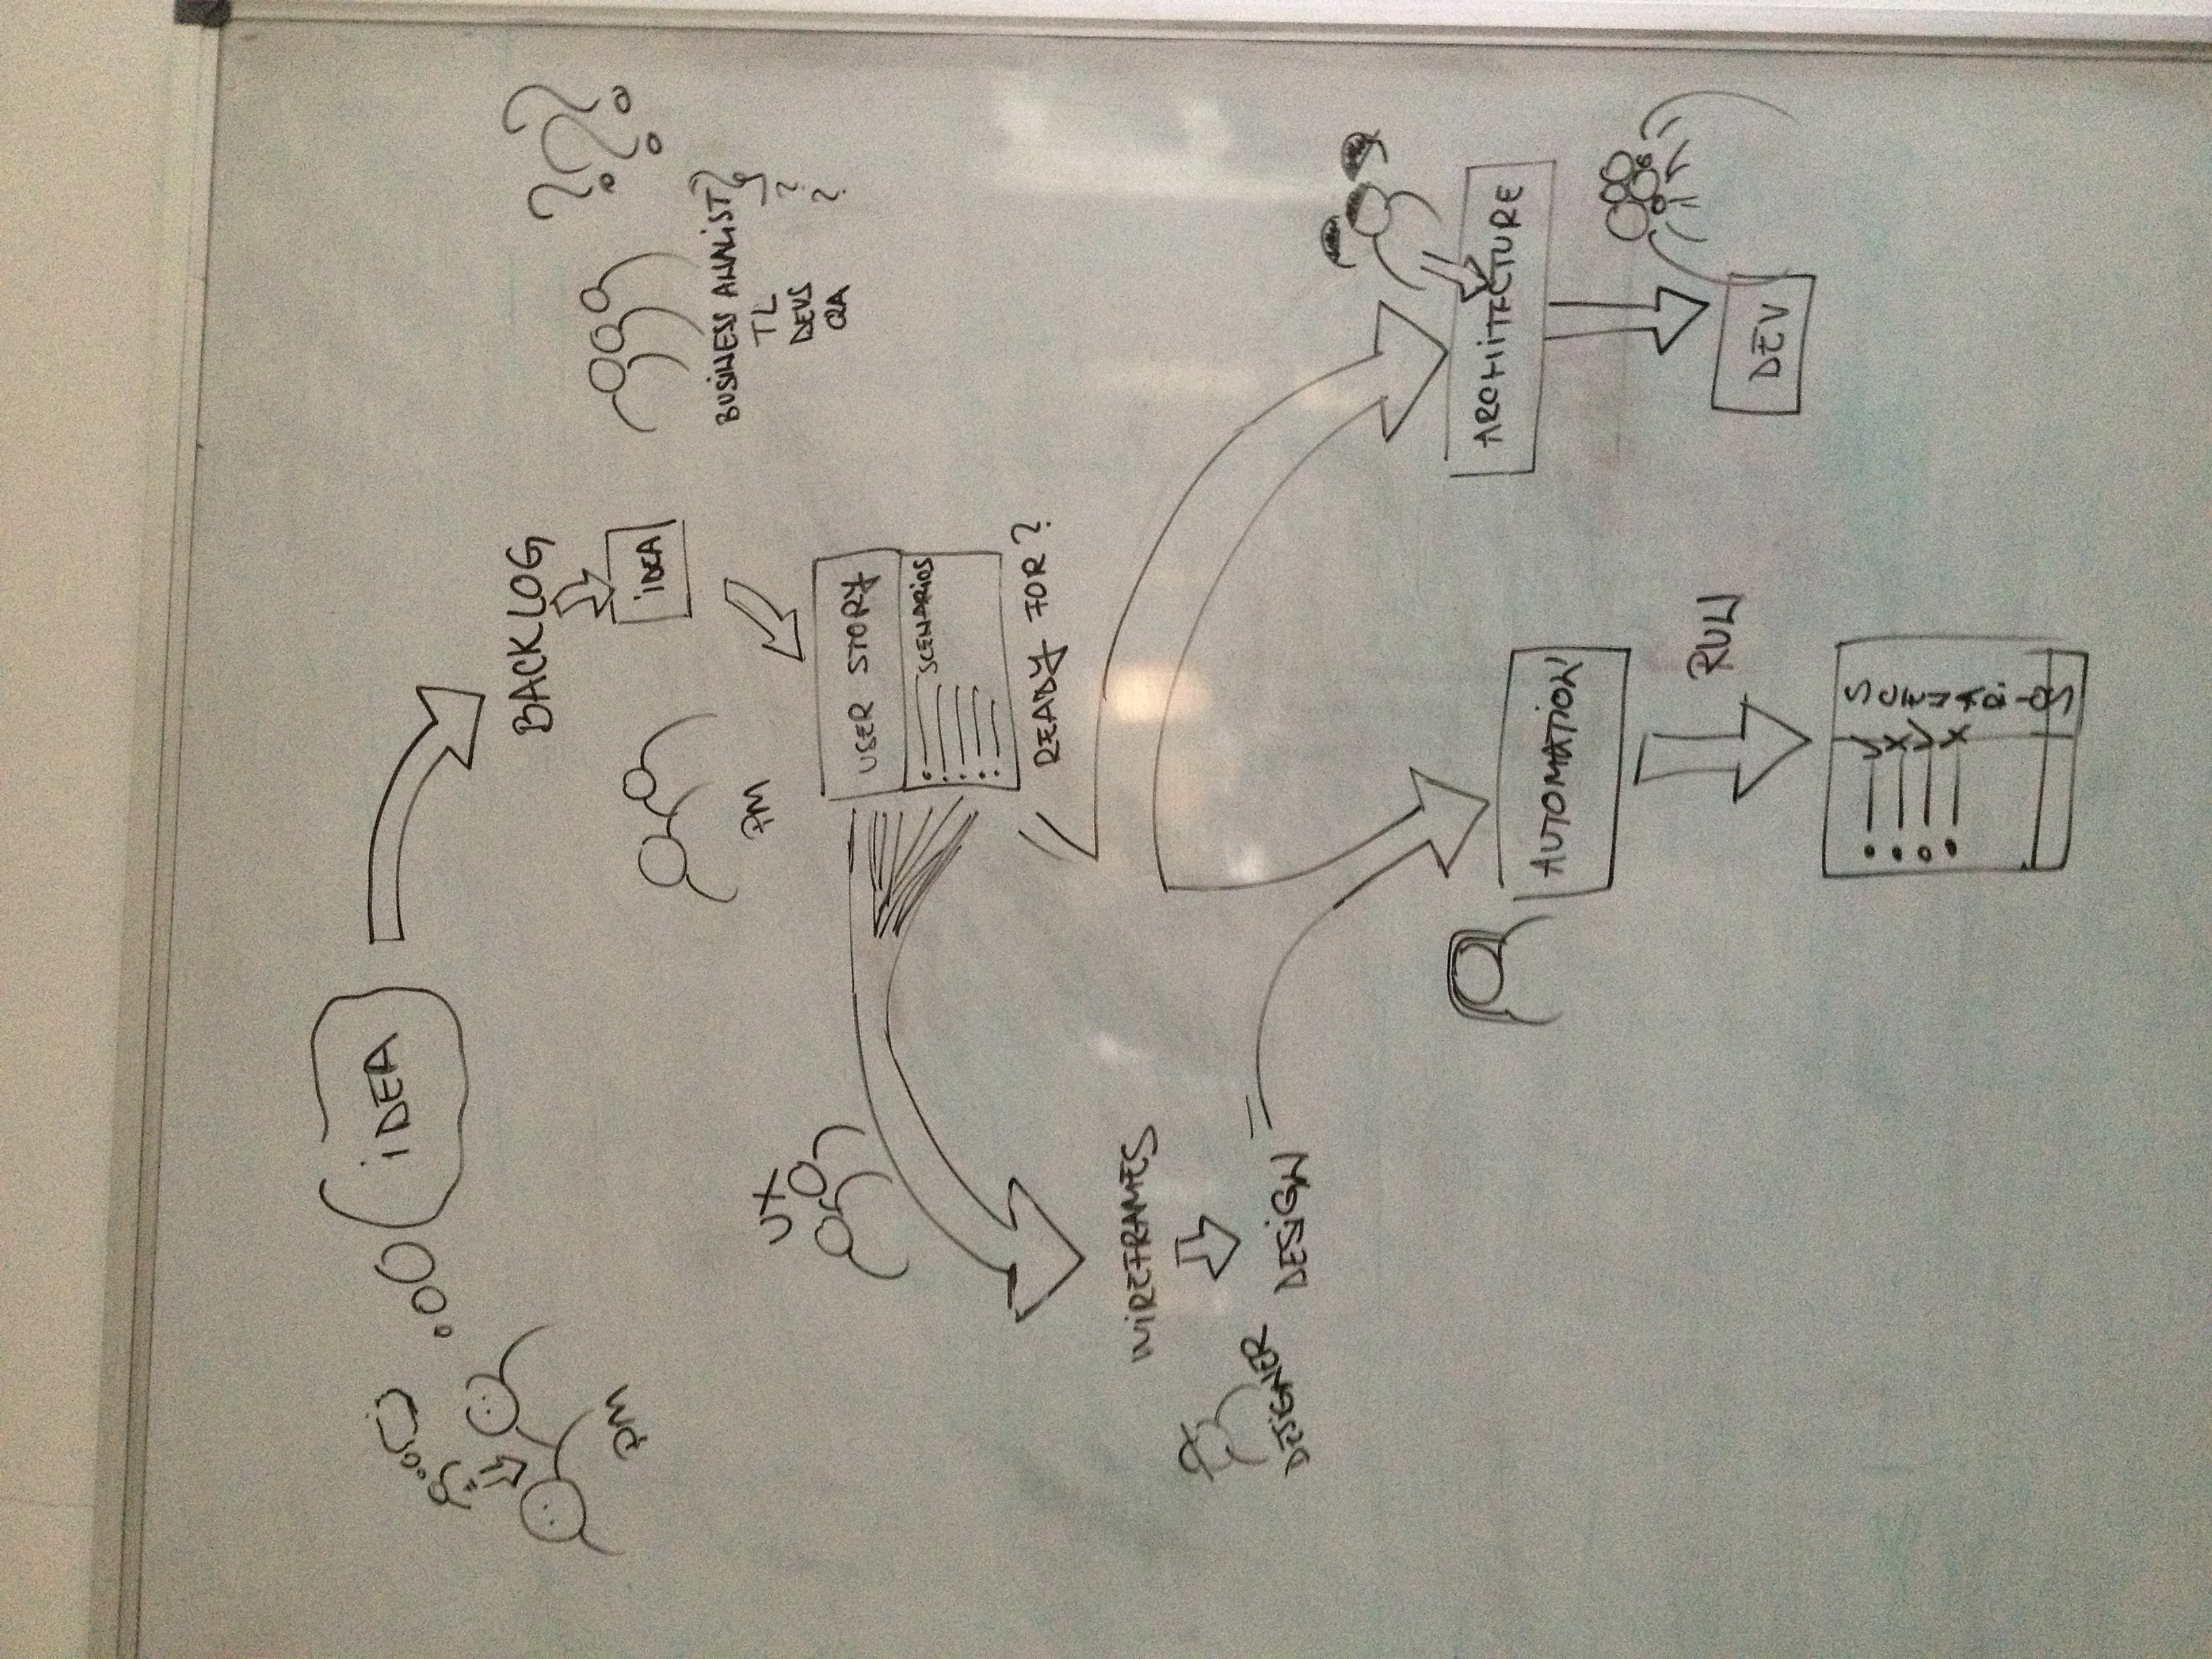 iDEA
BACKLOG
PM
iDEA
PM
BUSiNESS ANALiST ?
TL ?
DEVS ?
QA ?
???
UX
USER STORY
SCENARiOS
READY FOR?
WiREFRAMES
DESiGNER
DESiGN
ARCHiTECTURE
AUTOMATiON
RUN
DEV
SCENARiOS